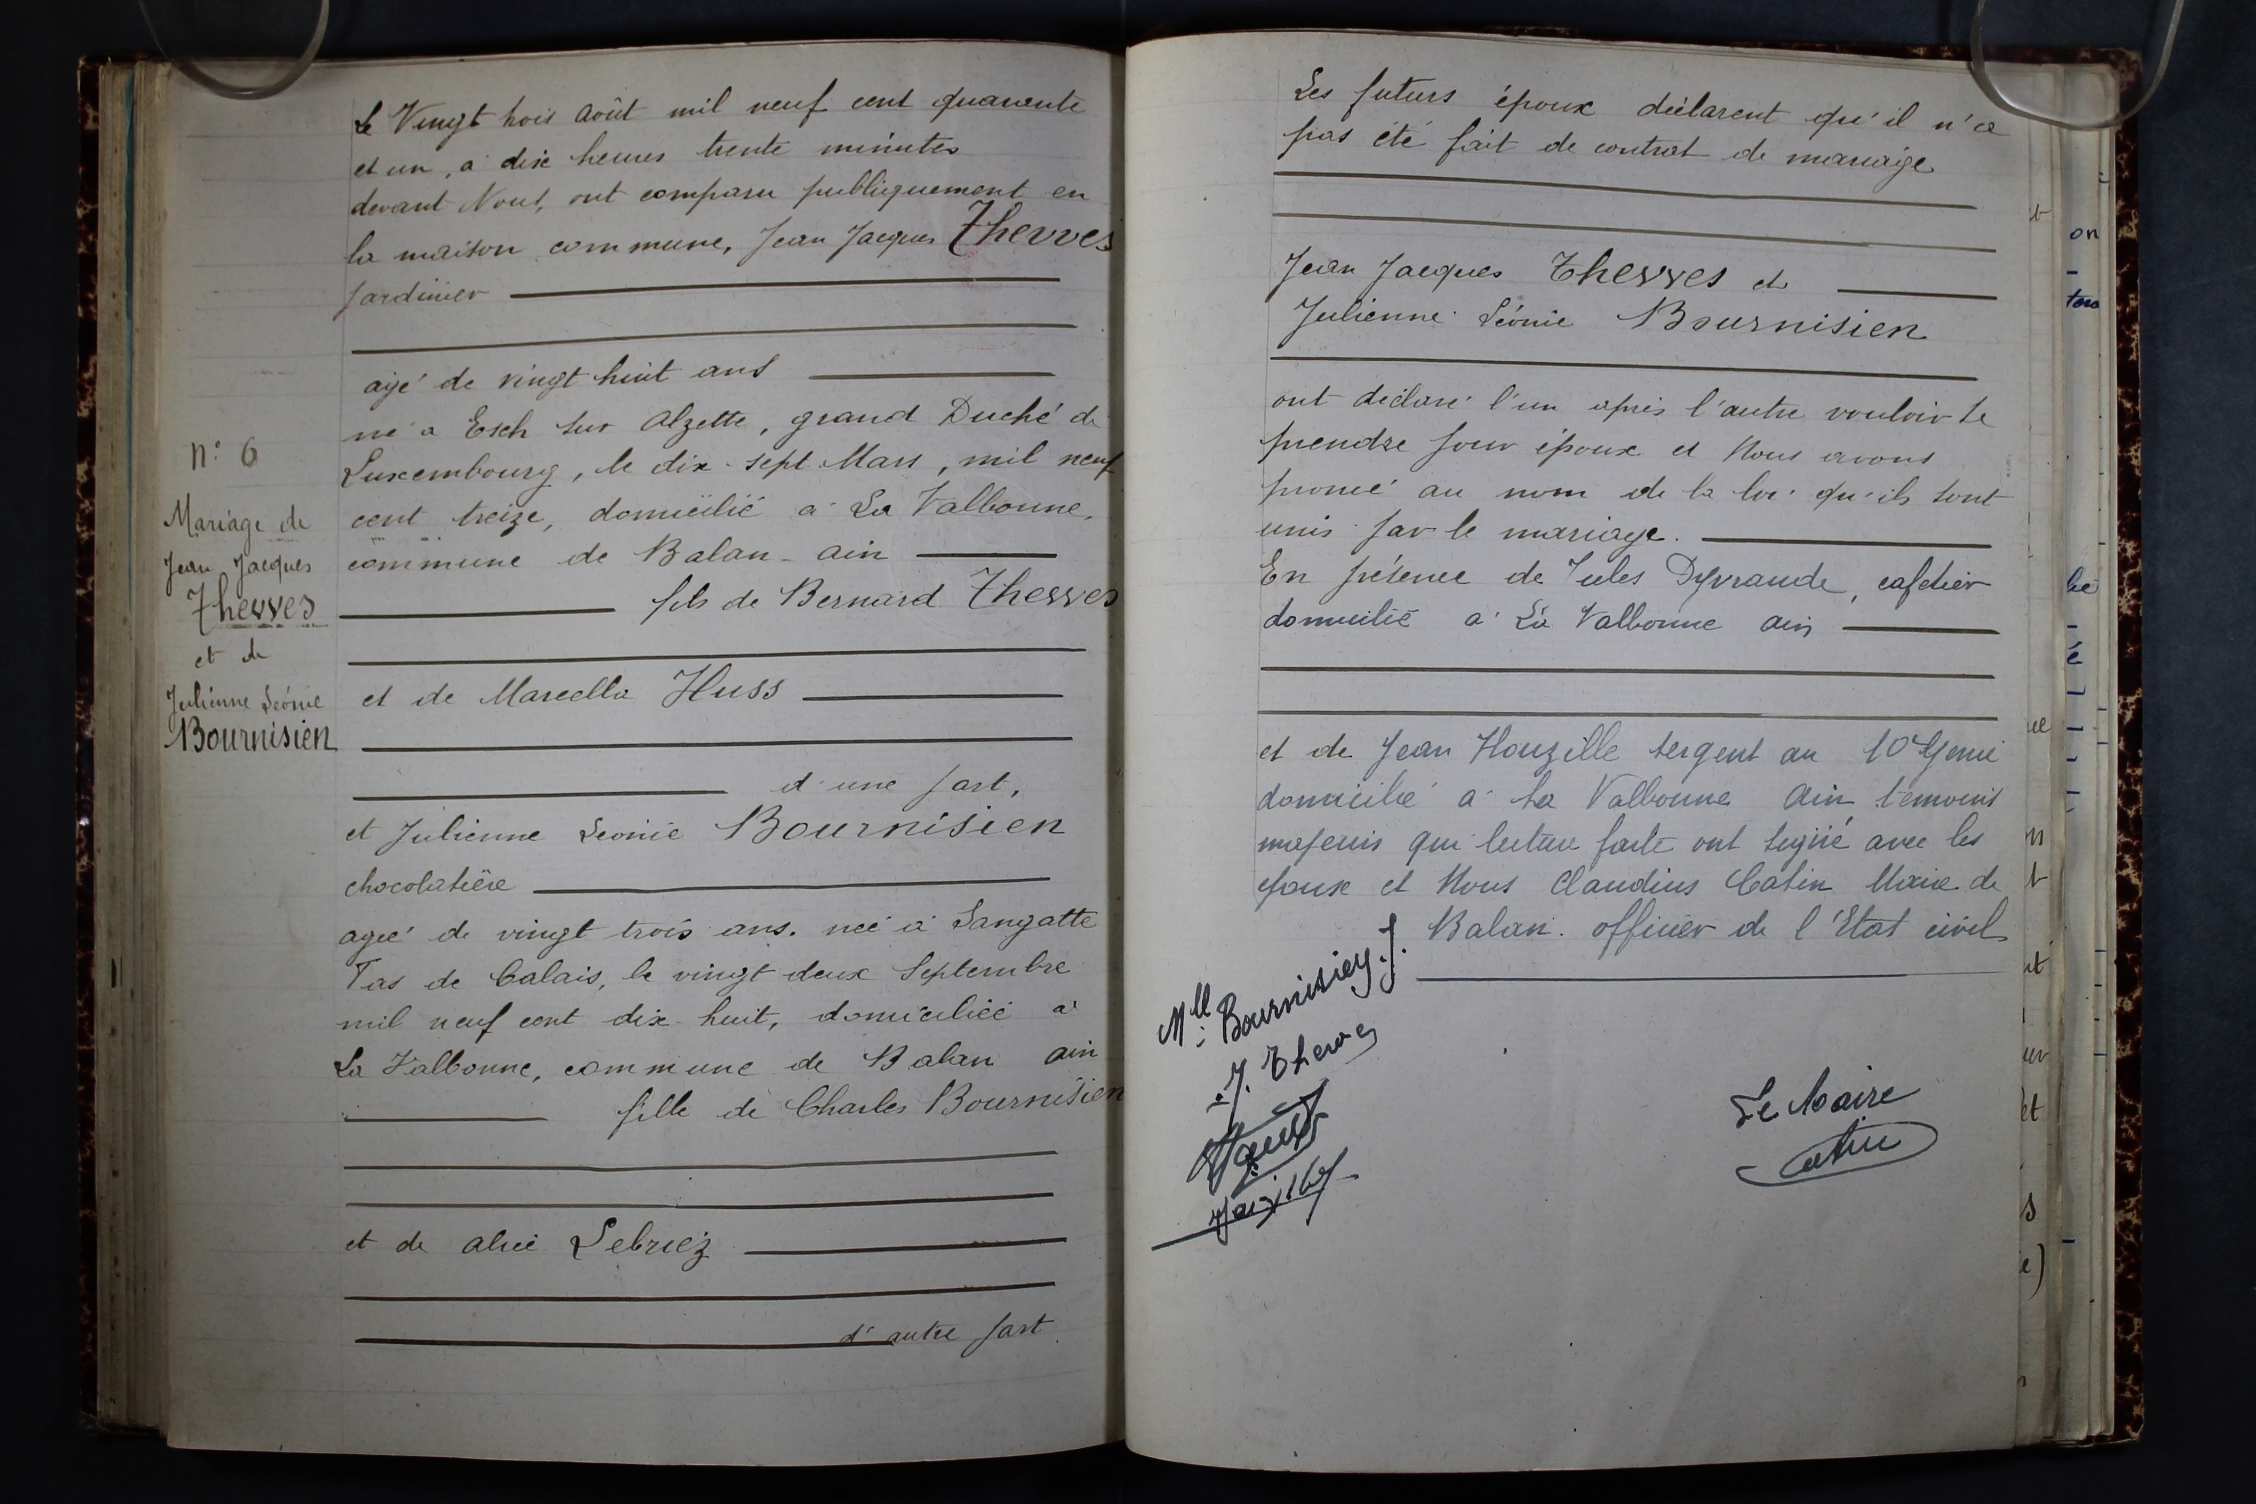 Le Vingt trois Août mil neuf cent quarante
et un, à dix heures trente minutes
devant Nous, ont comparu publiquement en
la maison commune, Jean Jacques Thewes
Jardinier
âgé de vingt huit ans
né à Esch sur Alzette, grand Duché de
Luxembourg, le dix-sept Mars, mil neuf
cent treize, domicilié à La Valbonne,
commune de Balan - ain
fils de Bernard Thewes
et de Marcella Huss
d'une part,
et Julienne Léonie Bournisien
chocolatière
agée de vingt trois ans. née à Sangatte
Pas de Calais, le vingt deux Septembre
mil neuf cent dix-huit, domiciliée à
La Valbonne, commune de Balan ain
fille de Charles Bournisien
et de alice Lebriez
d'autre part
N° 6
Mariage de
Jean Jacques
Thewes
et de
Julienne Léonie
Bournisien
Les futurs époux déclarent qu'il n'a
pas été fait de contrat de mariage
Jean Jacques Thewes et
Julienne Léonie Bournisien
ont déclaré l'un après l'autre vouloir se
prendre pour époux et Nous avons
prononcé au nom de la loi qu'ils sont
unis par le mariage.
En présence de Jules Dyvrande, cafetier
domicilié à La Valbonne ain
et de Jean Houzille sergent au 10e Génie
domicilié à La Valbonne Ain témoins
majeurs qui lecture faite ont signé avec les
epoux et Nous Claudius Catin Maire de
Balan. officier de l'Etat civil
Mlle Bournisien J.
J. Thewes
Le Maire
Catin